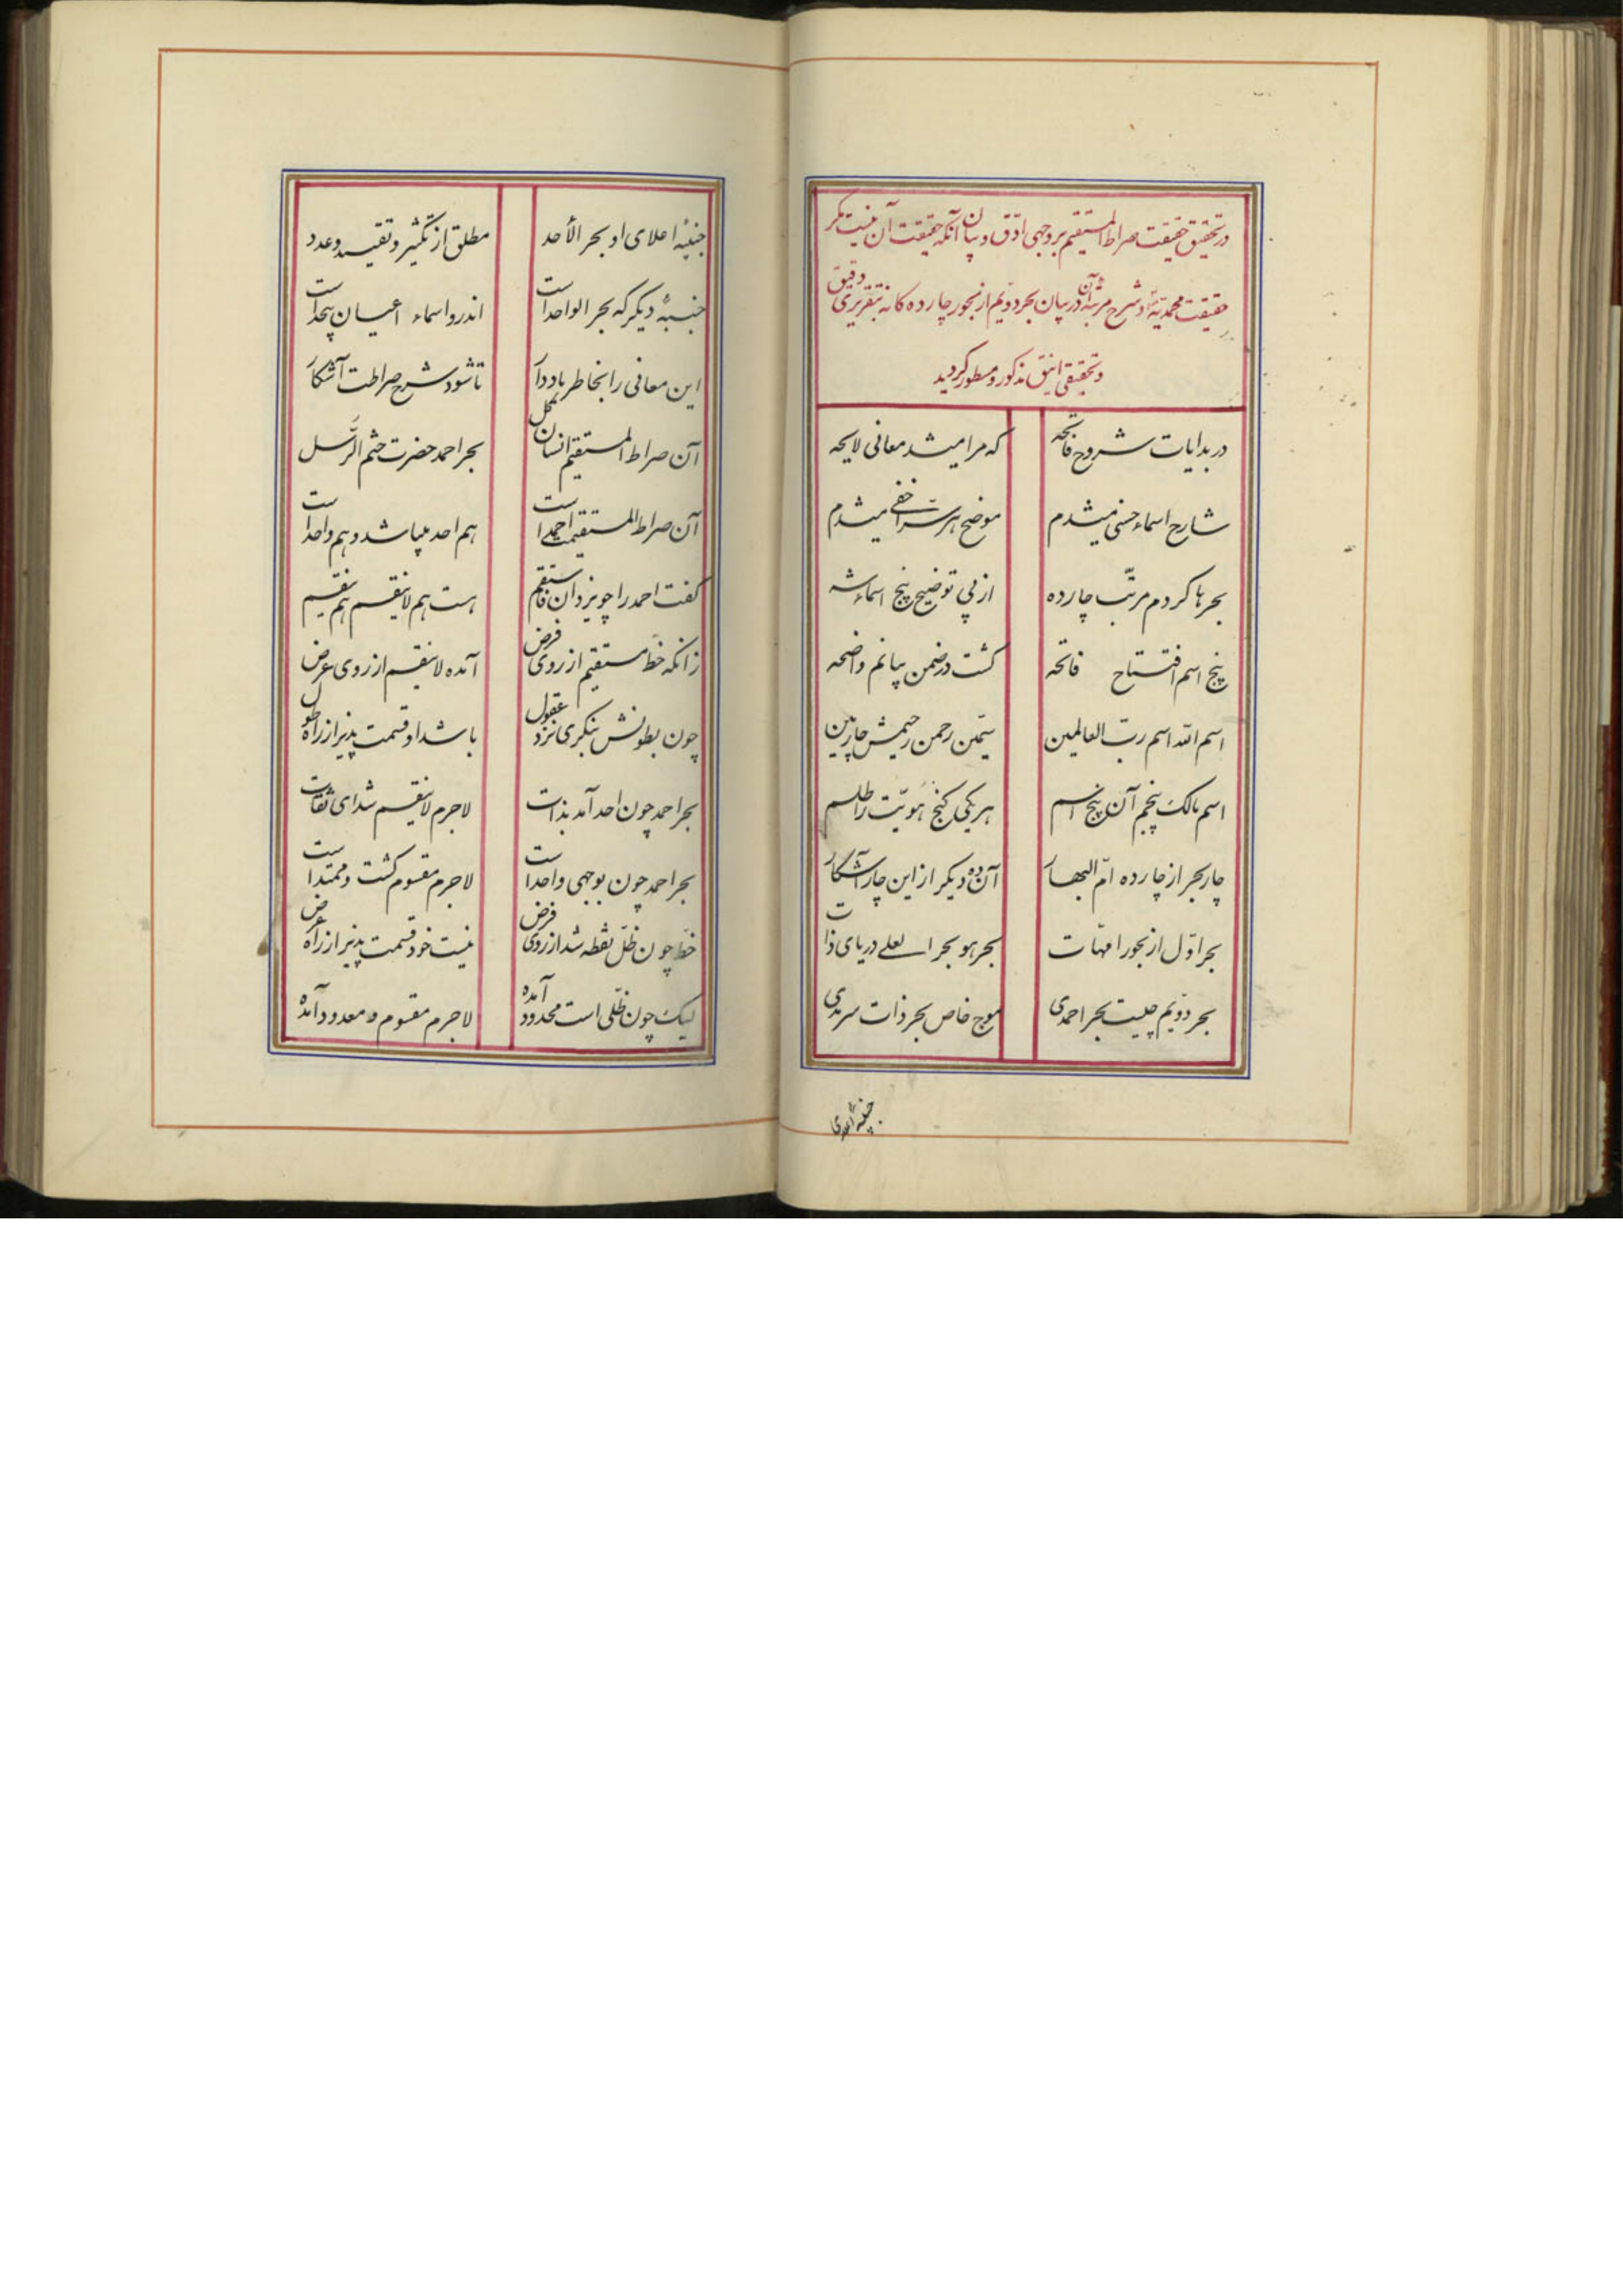 در تحقیق حقیقت صراط المستقیم بر وجهی ادق و بیان آنکه حقیقت آن نیست مکر
حقیقت محمدیه و شرح مرتبهٔ آن در بیان بحر دویم از بحور چارده کانه بتقریری دقیق
و تحقیقی انیق مذکور و مسطور کردید
در بدایات شروح فاتحه که مرا میشد معانی لایحه
شارح اسماء حسنی میشدم موضح هر سرّ اخفی میشدم
بحرها کردم مرتّب چارده از پی توضیح پنج اسماء شه
پنج اسم افتتاح فاتحه کشت در ضمن بیانم واضحه
اسم اللّه اسم ربّ العالمین سیّمن رحمن رحیمش چارمین
اسم مالک پنجم آن پنج اسم هر یکی کنج هویّت را طلسم
چار بحر از چارده امّ البحار آن ده دیکر از این چار آشکار
بحر اوّل از بحور امّهات بحر هو بحر العلی دریای ذات
بحر دویّم چیست بحر احمدی موج خاص بحر ذات سرمدی
جنبهٔ اعلای او بحر الأحد مطلق از تکثیر و تقیید و عدد
جنبهٔ دیکر که بحر الواحد است اندرو اسماء اعیان متحد است
این معانی را بخاطر یاد دار تا شود شرح صراطت آشکار
آن صراط المستقیم انسان کل بحر احمد حضرت ختم الرّسل
آن صراط المستقیمت احمد است هم احد میباشد و هم واحد است
کفت احمد را چو یزدان فاستقم هست هم لاینقسم هم ینقسم
زانکه خطّ مستقیم از روی فرض آمده لاینقسم از روی عرض
چون بطونش بنکری نزد عقول باشد او قسمت پذیر از راه طول
بحر احمد چون احد آمد بذات لاجرم لاینقسم شد ای ثقات
بحر احمد چون بوجهی واحد است لاجرم مقسوم کشت و ممتد است
خطّ چون ظلّ نقطه شد از روی فرض نیست خود قسمت پذیر از راه عرض
لیک چون ظلّی است محدود آمده لاجرم مقسوم و معدود آمده